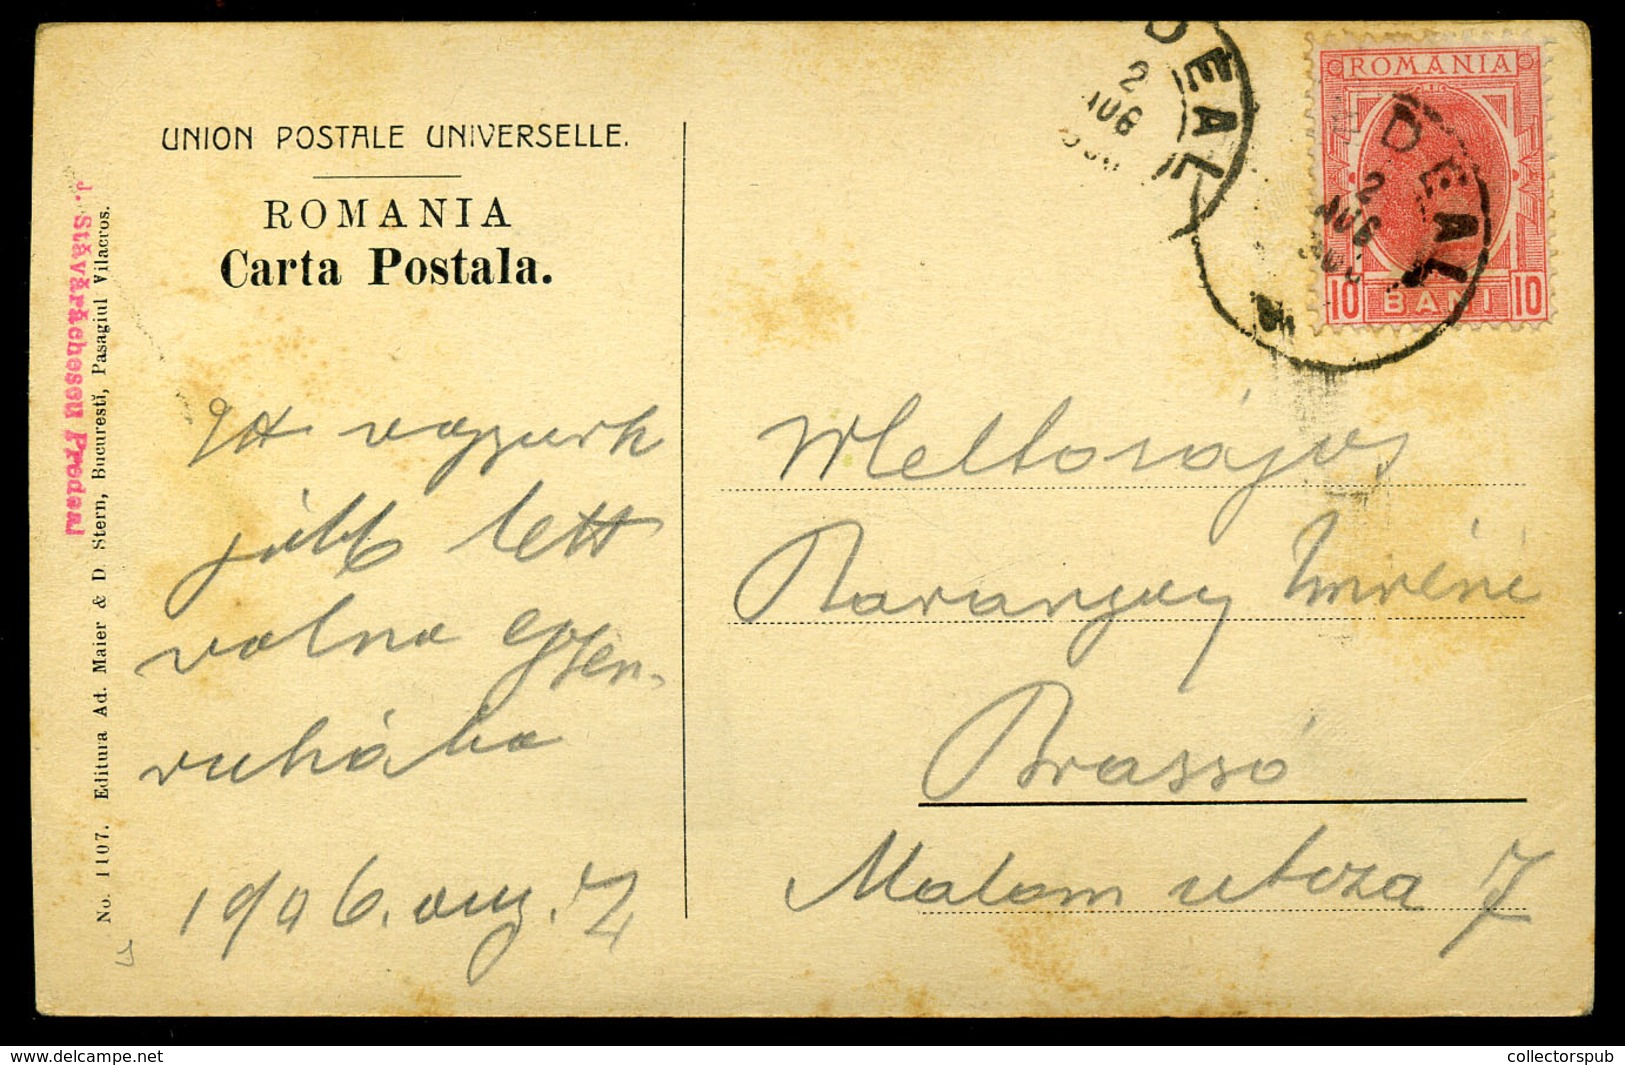 UNION POSTALE UNIVERSELLE.
ROMANIA
Carta Postala.
J. Stăvărăchescu Predeal
No. 1107. Editura Ad. Maier & D. Stern, Bucuresti, Pasagiul Vilacros.
ROMANIA
10 BANI 10
DEAL
2
AUG
EDEAL
2
AUG
Itt vagyunk
jobb lett
volna egyen-
ruhába
1906. aug. 2
Meltoságos
Imréné
Brassó
Malom utcza 7
collectorspub